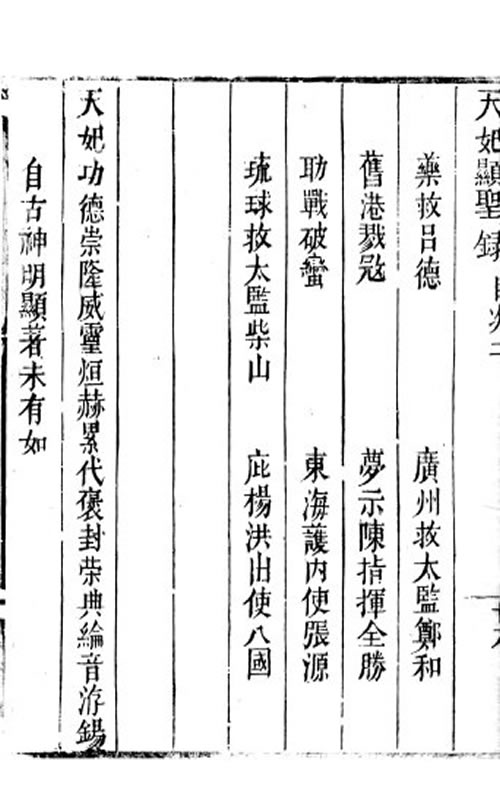 天妃顯聖錄
藥救呂德　廣州救太監鄭和
舊港戮寇　夢示陳指揮全勝
助戰破蠻　東海護內使張源
琉球救太監柴山　庇楊洪出使八國
天妃功德崇隆威靈烜赫累代褒封榮典綸音洊錫
自古神明顯著未有如